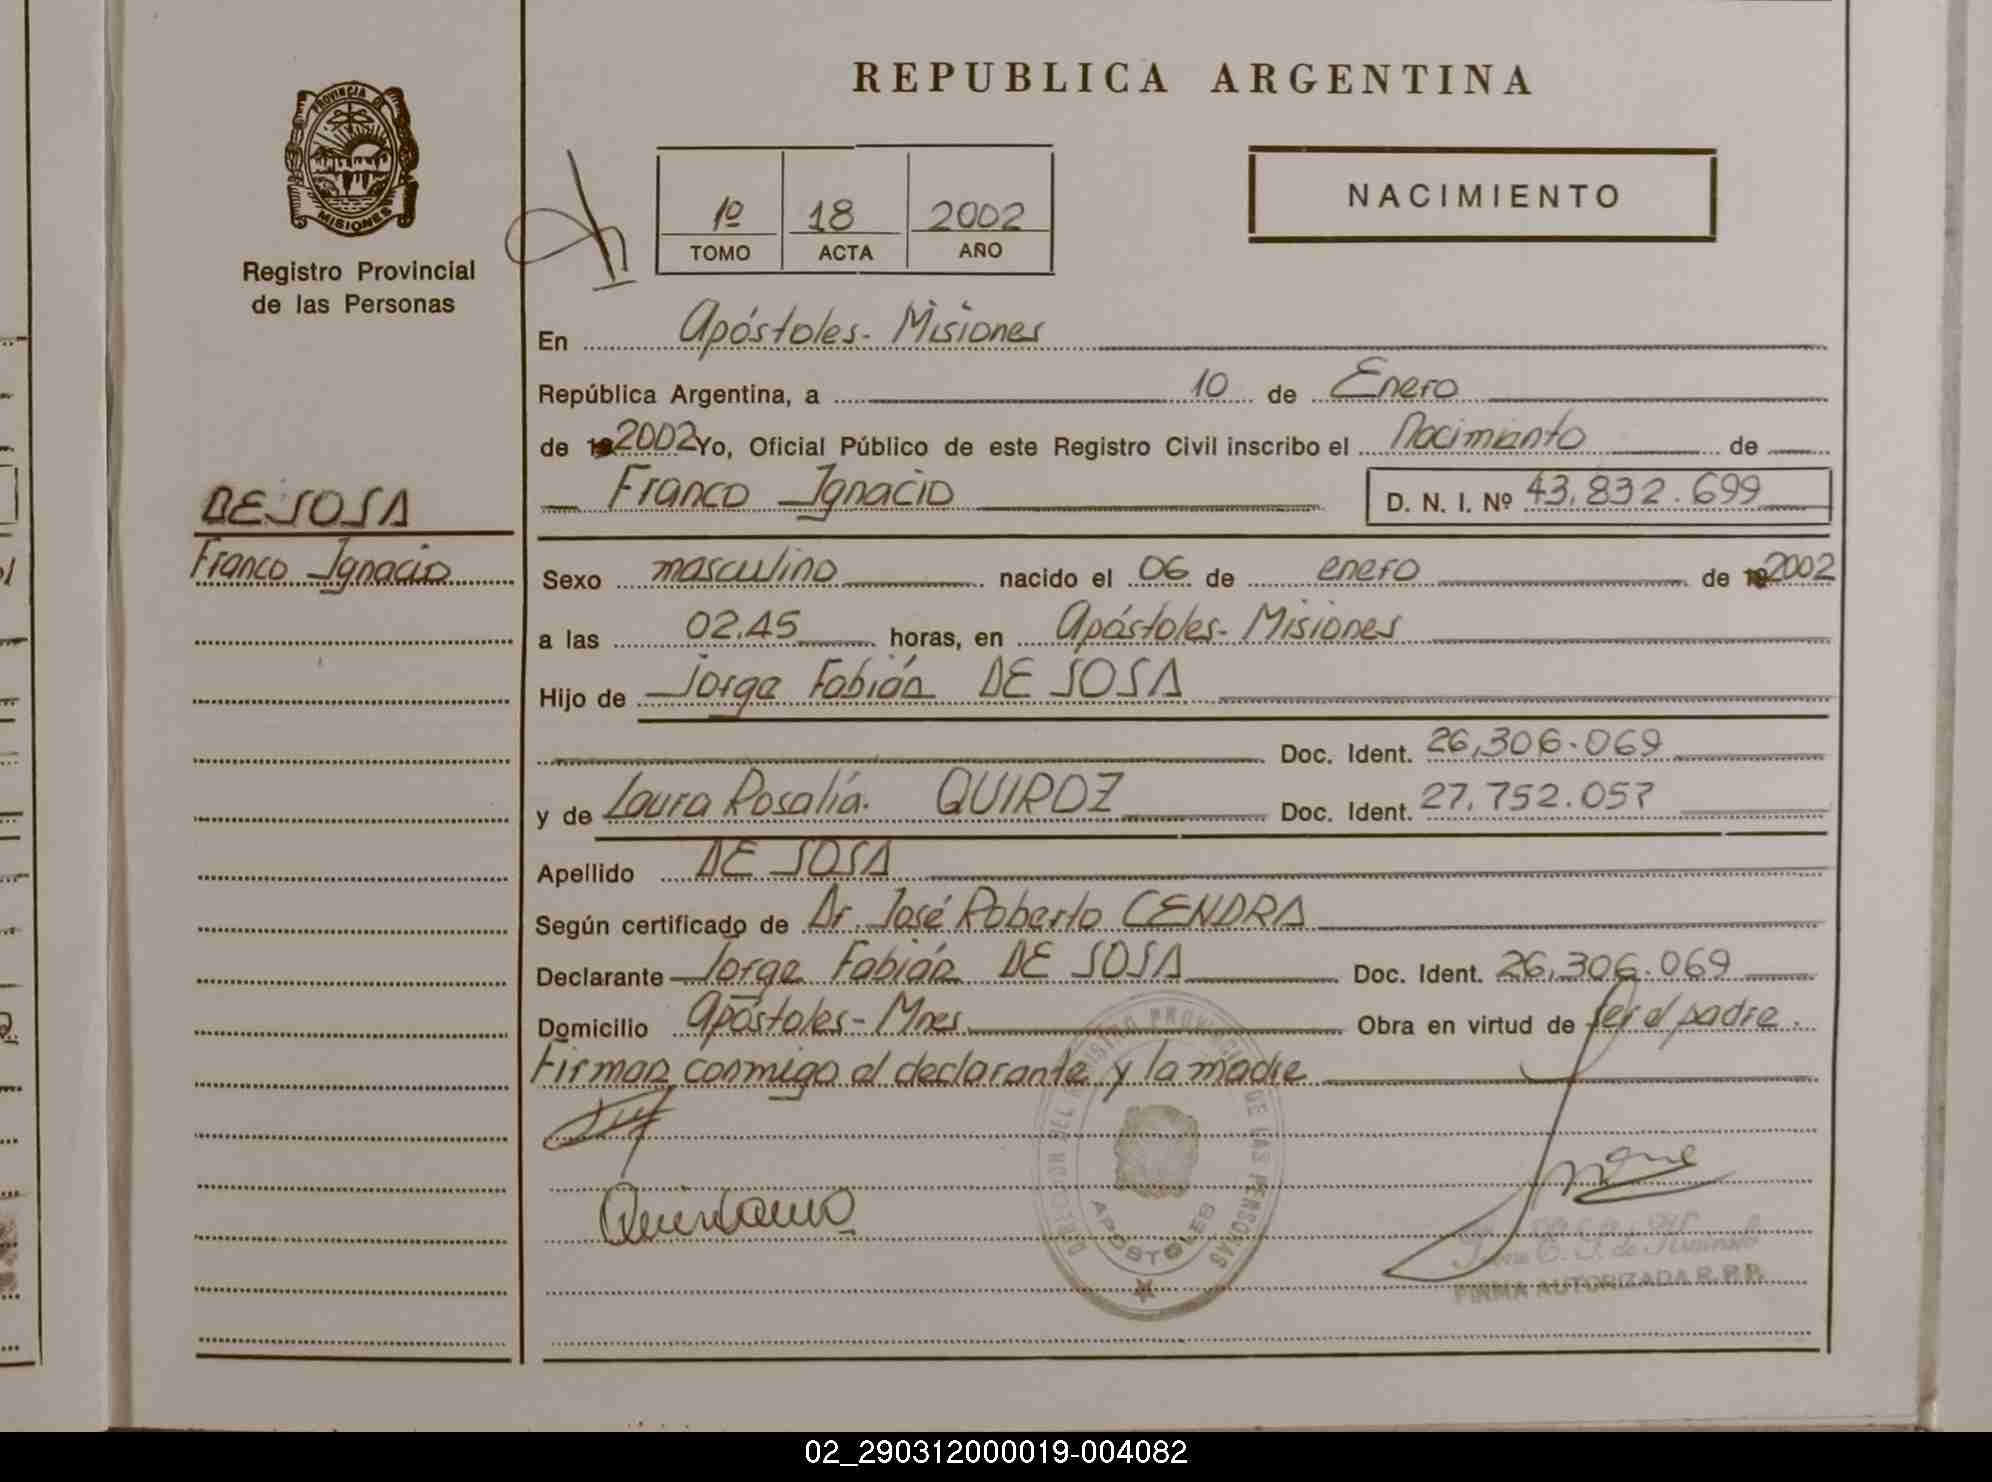 REPUBLICA ARGENTINA
PROVINCIA DE
MISIONES
Registro Provincial
de las Personas
1º 18 2002
TOMO ACTA AÑO
NACIMIENTO
En Apóstoles - Misiones
República Argentina, a 10 de Enero
de 2002 Yo, Oficial Público de este Registro Civil inscribo el Nacimiento de
Franco Ignacio D. N. I. Nº 43.832.699
DE SOSA
Franco Ignacio
Sexo masculino nacido el 06 de enero de 2002
a las 02.45 horas, en Apóstoles - Misiones
Hijo de Jorge Fabián DE SOSA
Doc. Ident. 26.306.069
y de Laura Rosalía. QUIROZ Doc. Ident. 27.752.057
Apellido DE SOSA
Según certificado de Dr. José Roberto CENDRA
Declarante Jorge Fabián DE SOSA Doc. Ident. 26.306.069
Domicilio Apóstoles - Mnes Obra en virtud de ser el padre.
Firman conmigo el declarante y la madre
REGISTRO PROVINCIAL DE LAS PERSONAS
APOSTOLES
FIRMA AUTORIZADA R.P.P.
02_290312000019-004082